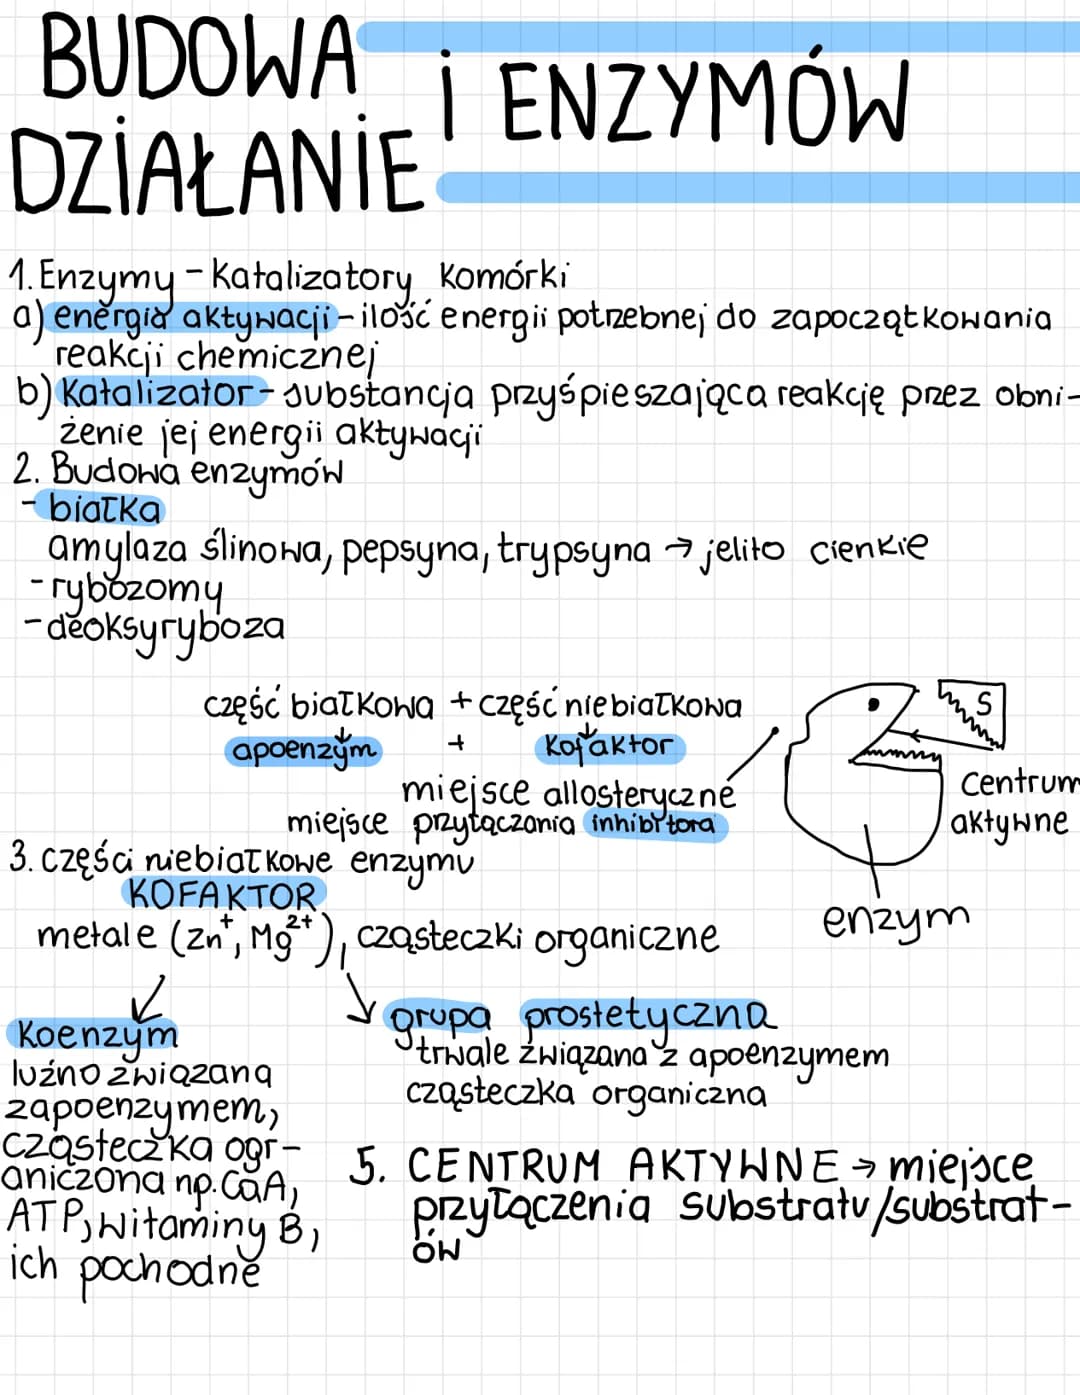 BUDOWA i ENZYMÓW
DZIAŁANIE
1. Enzymy - Katalizatory Komórki
a) energia aktywacji - ilość energii potrzebnej do zapoczątkowania
reakcji chemicznej
b) Katalizator - substancja przyśpieszająca reakcję przez obni-
żenie jej energii aktywacji
2. Budowa enzymów
- białka
amylaza ślinowa, pepsyna, trypsyna → jelito cienkie
- rybozomy
- deoksyryboza
część białkowa + część niebiałkowa
apoenzym + Kofaktor
S
miejsce allosteryczne
Centrum
aktywne
miejsce przyłączania inhibitora
3. części niebiałkowe enzymu
KOFAKTOR
enzym
metale (Zn⁺, Mg²⁺), cząsteczki organiczne
Koenzym
luźno związana
zapoenzymem,
cząsteczka ogr-
aniczona np. CoA,
ATP, witaminy B,
ich pochodne
grupa prostetyczna
trwale związana z apoenzymem
cząsteczka organiczna
5. CENTRUM AKTYWNE → miejsce
przyłączenia substratu/substrat-
ów